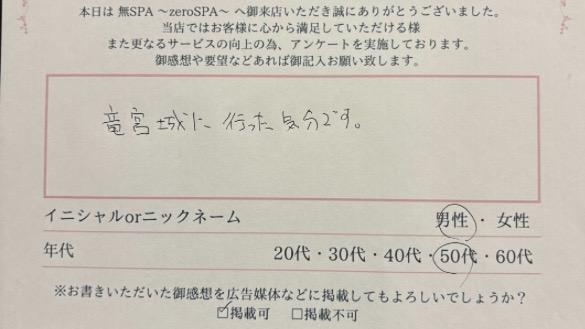 本日は 無SPA ～zeroSPA～ へ御来店いただき誠にありがとうございました。
当店ではお客様に心から満足していただける様
また更なるサービスの向上の為、アンケートを実施しております。
御感想や要望などあれば御記入お願い致します。
竜宮城に行った気分です。
イニシャルorニックネーム 男性・女性
年代 20代・30代・40代・50代・60代
※お書きいただいた御感想を広告媒体などに掲載してもよろしいでしょうか？
☑掲載可 □掲載不可